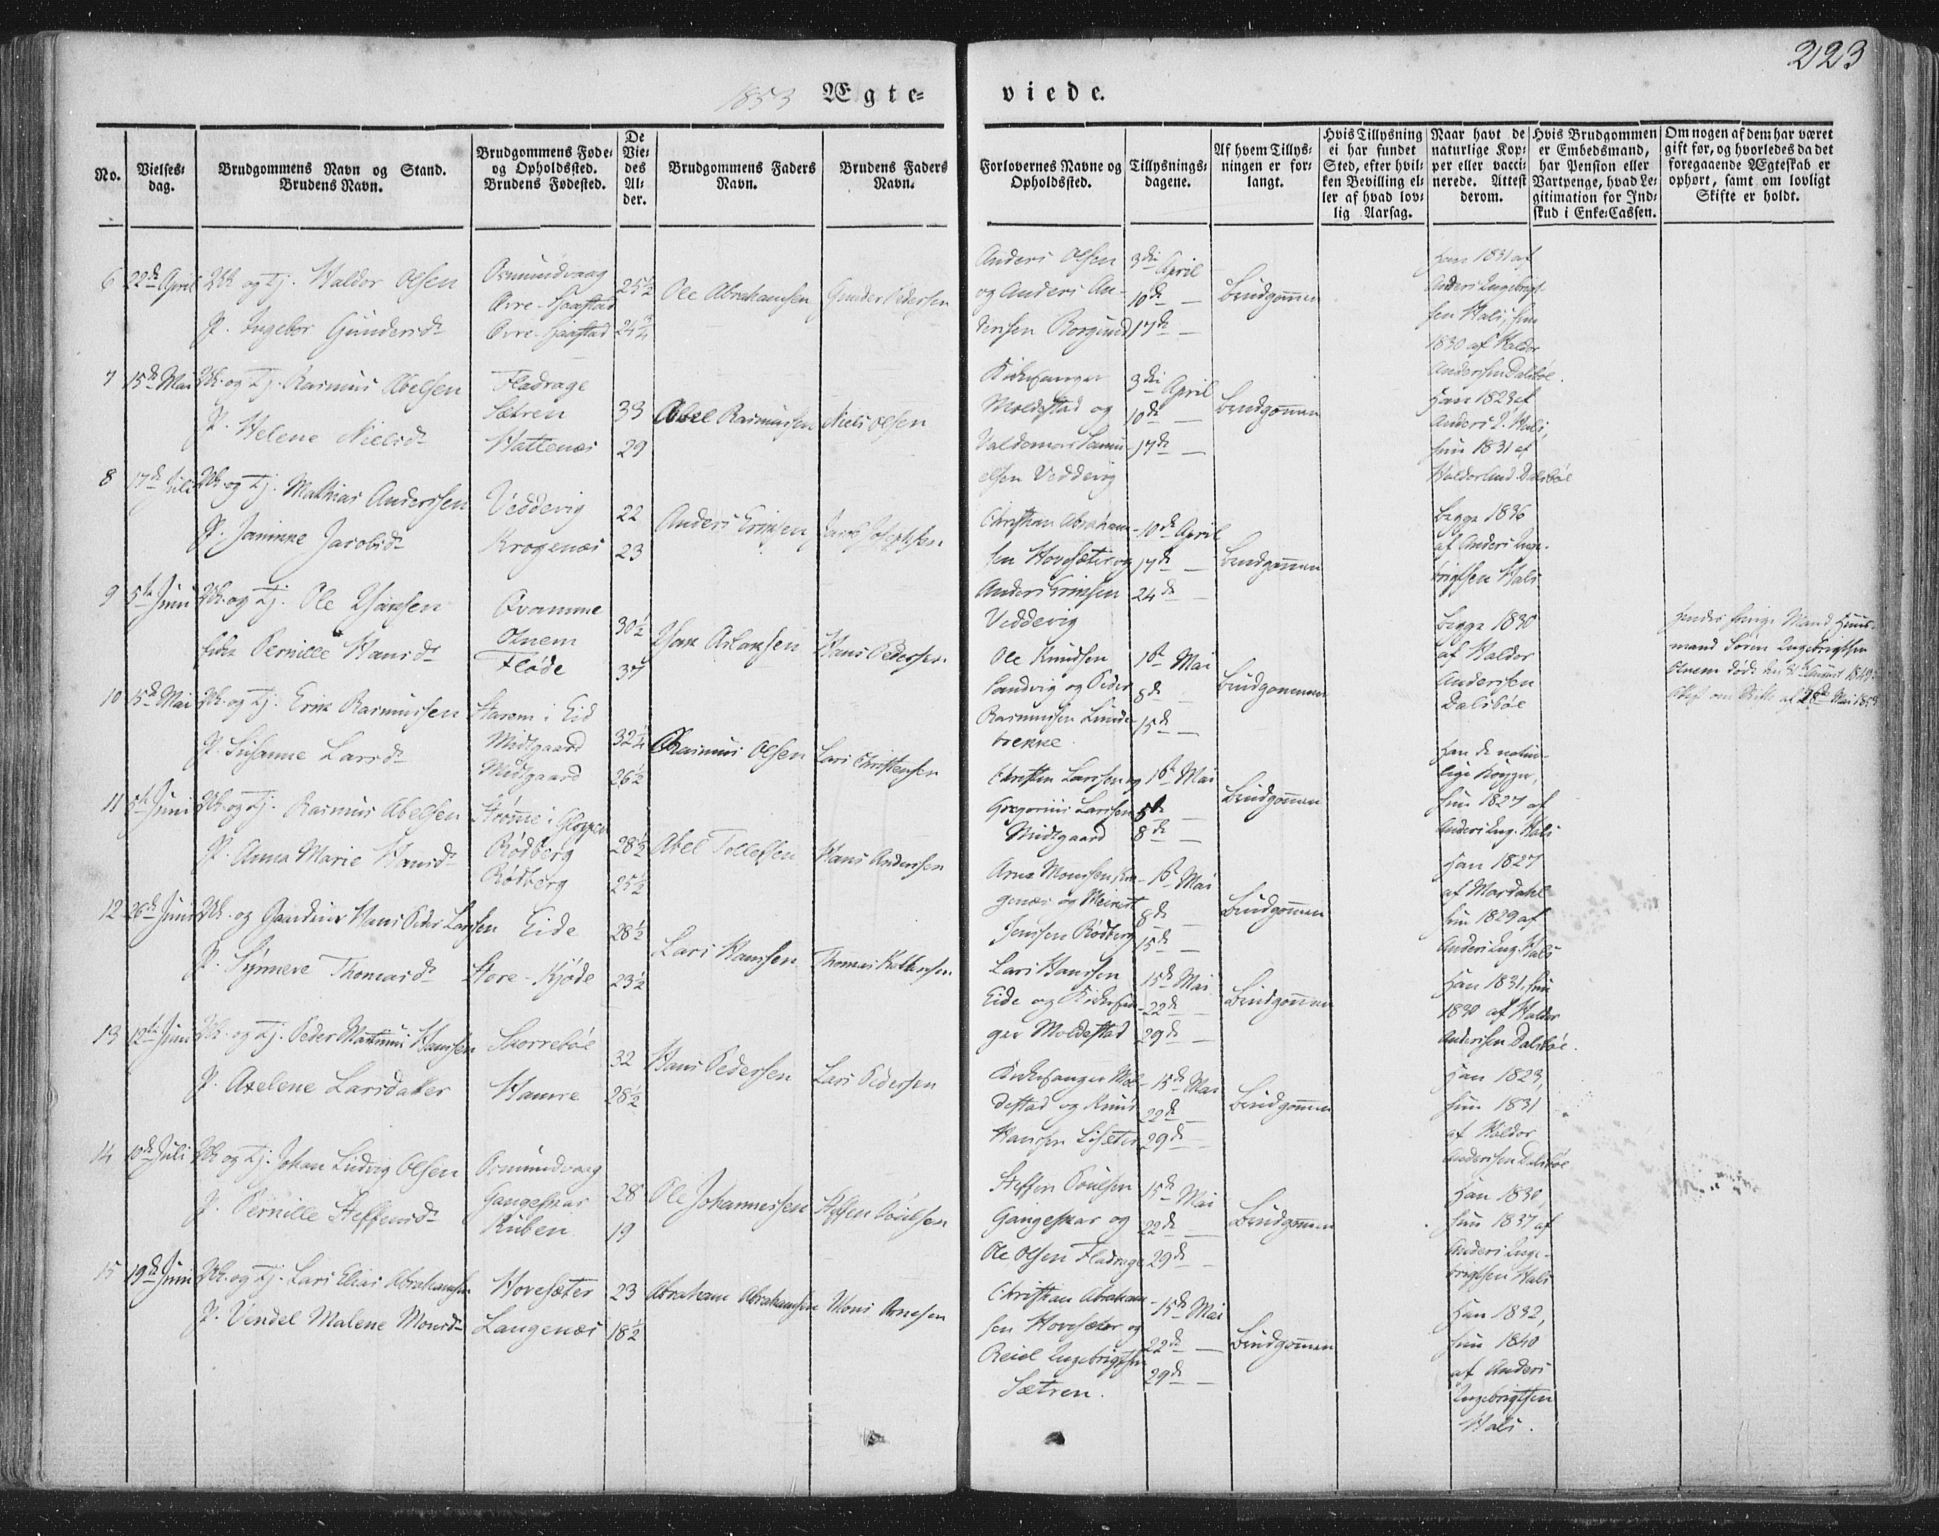 223
1853 Ægte- viede.
No.
Vielses-
dag.
Brudgommens Navn og Stand.
Brudens Navn.
Brudgommens Føde-
og Opholdssted.
Brudens Fødested.
De
Vie-
des
Al-
der.
Brudgommens Faders
Navn.
Brudens Faders
Navn.
Forlovernes Navne og
Opholdssted.
Tillysnings-
dagene.
Af hvem Tillys-
ningen er for-
langt.
Hvis Tillysning
ei har fundet
Sted, efter hvil-
ken Bevilling el-
ler af hvad lov-
lig Aarsag.
Naar havt de
naturlige Kop-
per eller vacci-
nerede. Attest
derom.
Hvis Brudgommen
er Embedsmand,
har Pension eller
Vartpenge, hvad Le-
gitimation for Ind-
skud i Enke-Cassen.
Om nogen af dem har været
gift før, og hvorledes da det
foregaaende Ægteskab er
ophørt, samt om lovligt
Skifte er holdt.
6 22de April og Tj. Haldor Olsen
P. Ingebor Gundersdr
Osmundvaag
Øvre-Haastad
Øvre-Haastad
25½
24¾
Ole Abrahamsen
Gunder Pedersen
Anders Olsen
og Anders An-
dersen Borgund
3die April
10de —
17de —
Brudgommen
Han 1831 af
Anders Ingebrigt-
sen Hals, hun
1830 af Haldor
Andersen Dalsbøe.
7 15de Mai og Tj. Rasmus Abelsen
P. Helene Nielsdr
Fladrage
Sætren
Hattenæs
33
29
Abel Rasmussen
Niels Olsen
Kirkesanger
Moldestad og
Valdemar Samu-
elsen Veddevig
3die April
10de —
17de —
Brudgommen
Han 1823 af
Anders I. Hals,
hun 1831 af
Haldor And. Dalsbøe
8 17de Juli og Tj. Mathias Anderssen
P. Jaminne Jacobsdr
Veddevig
Krogenæs
22
23
Anders Erikssen
Jacob Josephsen
Christian Abraham-
sen Hovesæter og
Anders Erikssen
Veddevig
10de April
17de —
24de —
Brudgommen
begge 1836
af Anders Inge-
brigtsen Hals
9 5te Juni og Tj. Ole Isaksen
Enke Pernille Hansdr
Qvamme
Otnem
Fløde
30½
37
Isak Aslaksen
Hans Pedersen
Ole Knudsen
Sandvig og Peder
Rasmussen Lunde-
brekke
1ste Mai
8de —
15de —
Brudgommen
begge 1830
af Haldor
Andersen
Dalsbøe
Hendes forrige Mand Huus-
mand Søren Ingebrigtsen
Otnem døde den August 1849.
Attest om Skifte af 26de Mai 1853
10 15de Mai og Tj. Erik Rasmussen
P. Susanne Larsdr
Starem i Eid
Midtgaard
Midtgaard
32¼
26½
Rasmus Olsen
Lars Christensen
Christen Larssen og
Gregorius Larssen
Midtgaard
1ste Mai
5te —
8de —
Brudgommen
Han de natur-
lige Kopper,
hun 1827 af
Anders Ing. Hals
11 5te Juni og Tj. Rasmus Abelsen
P. Anna Marie Hansdr
Strømme i Gloppen
Rødberg
Rødberg
28½
25½
Abel Tollefsen
Hans Anderssen
Arne Monssen
genæs og Meinert
Jenssen Rødberg
1ste Mai
8de —
15de —
Brudgommen
Han 1827
af Mardahl
hun 1829 af
Anders Ing. Hals
12 26de Juni og Gaardmr Hans Peder Larssen
P. Synneve Thomasdr
Eide
Store-Kjøde
28½
23½
Lars Hanssen
Thomas
Lars Hanssen
Eide og Kirkesan-
ger Moldestad
15de Mai
22de —
29de —
Brudgommen
Han 1831, hun
1830 af Haldor
Andersen Dalsbøe.
13 12te Juni og Tj. Peder Martinus Hanssen
P. Axelene Larsdatter
Skorrebøe
Hamre
32
28½
Hans Pedersen
Lars Pedersen
Kirkesanger Mol-
destad og Knud
Hanssen Lisæter
15de Mai
22de —
29de —
Brudgommen
Han 1823,
hun 1831
af Haldor
Anderssen Dalsbøe
14 10de Juli og Tj. Johan Ludvig Olsen
P. Pernille Steffensdr
Osmundvaag
Gangeskar
Ruben
28
19
Ole Johannessen
Steffen Poulsen
Steffen Poulsen
Gangeskar og
Ole Olsen Fladrage
15de Mai
22de —
29de —
Brudgommen
Han 1830,
hun 1837 af
Anders Inge-
brigtsen Hals
15 19de Juni og Tj. Lars Elias Abrahamsen
P. Vendel Malene Monsdr
Hovesæter
Langenæs
23
18½
Abraham Abrahamsen
Mons Arnesen
Christian Abraham-
sen Hovesæter og
Reiel Ingebrigtsen
Sætren.
15de Mai
22de —
29de —
Brudgommen
Han 1832,
hun 1840
af Anders
Ingebrigtsen
Hals.